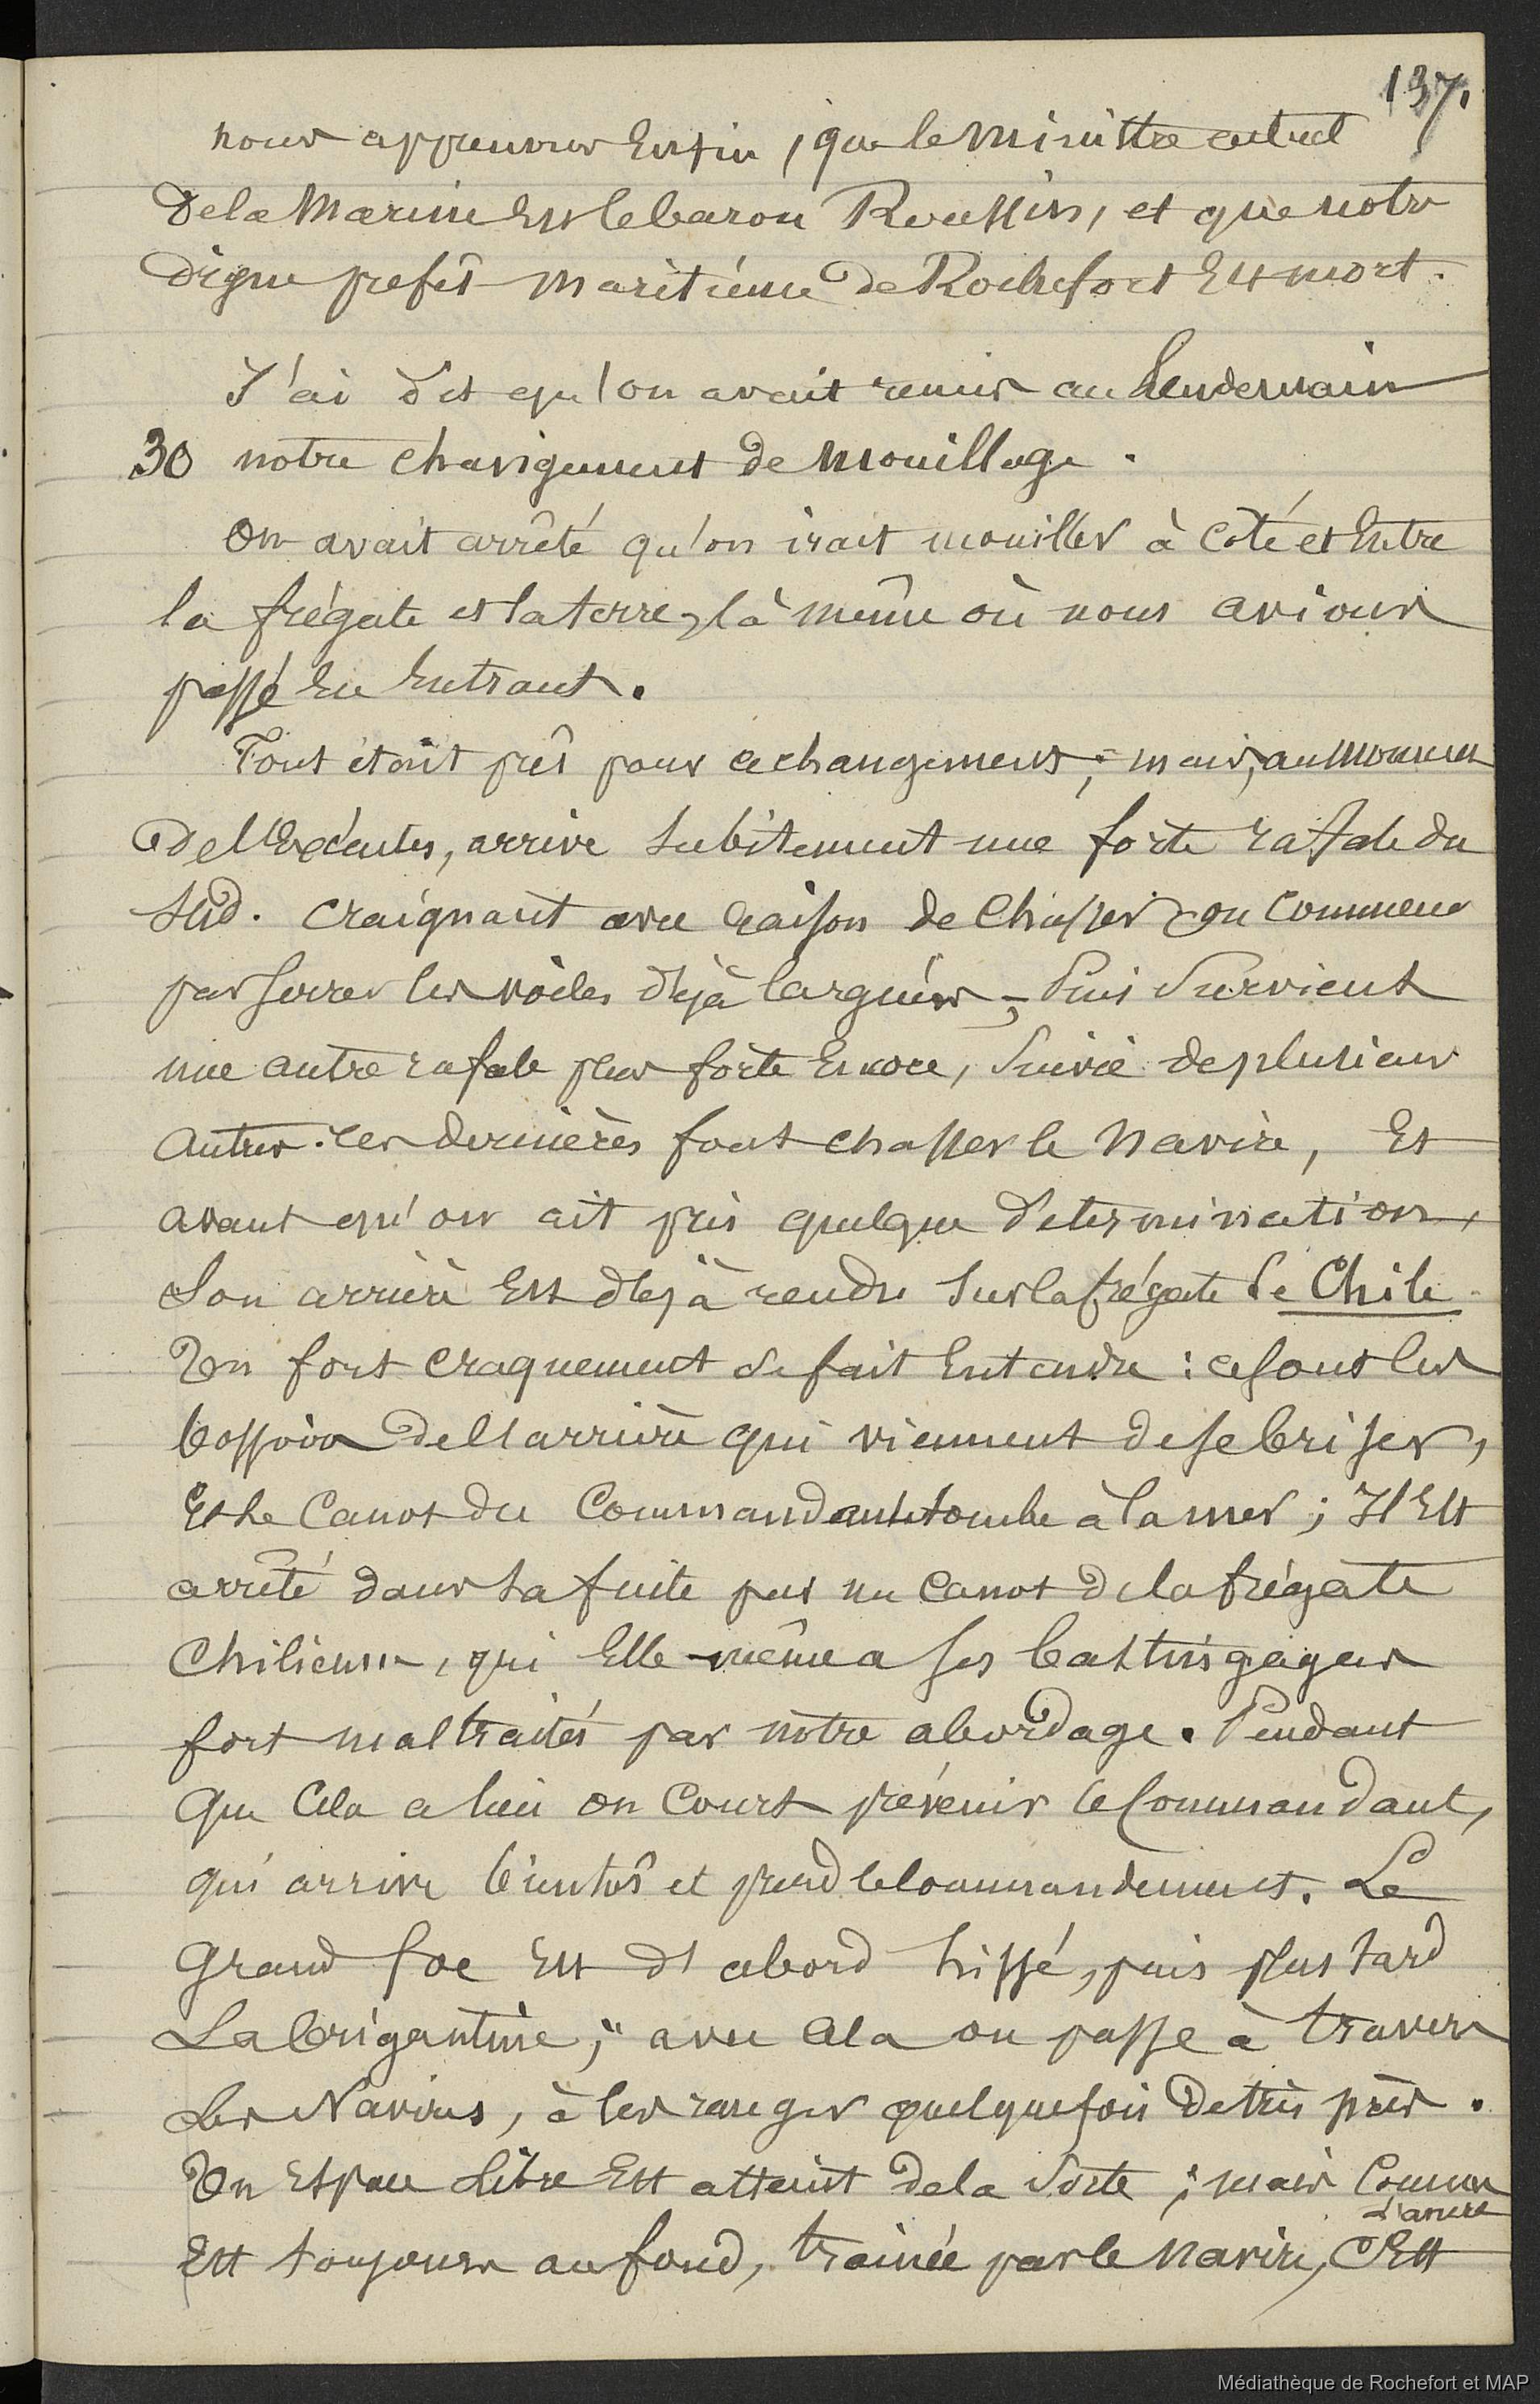 137.
nous apprenons Enfin, que le Ministre actuel
De la Marine Est le baron Roussin, et que notre
Digne préfet Maritime de Rochefort Est mort.
J'ai dit qu'on avait remis au Lendemain
30 notre changement de Mouillage.
On avait arrêté qu'on irait mouiller à Coté et Entre
la frégate et la terre, là même où nous avions
passé En Entrant.
Tout était prêt pour ce changement; mais, au Moment
de l'Exécuter, arrive Subitement une forte rafale du
Sud. Craignant avec raison de Chasser on Commence
par Serrer les voiles déjà larguées; Puis Survient
une autre rafale plus forte Encore, Suivie de plusieurs
Autres. ces dernières font chasser le Navire, Et
avant qu'on ait pris quelque détermination,
Son arrière Est déjà rendu Sur la frégate le Chili.
Un fort craquement Se fait Entendre : ce sont les
bossoirs De l'arrière qui viennent de se briser,
Et Le Canot du Commandant tombe à la mer; Il Est
arrêté dans Sa fuite par un canot de la frégate
Chilienne, qui Elle-même a ses bastingages
fort maltraités par notre abordage. Pendant
Que Cela a lieu on Court prévenir le Commandant,
qui arrive bientôt et prend le Commandement. Le
Grand foc Est d'abord hissé, puis plus tard
La brigantine; avec Cela on passe à travers
Les Navires, à les ranger quelquefois De très près.
Un Espace Libre Est atteint de la Sorte; mais Comme
L'ancre
Est toujours au fond, trainée par le Navire, C'Est
Médiathèque de Rochefort et MAP